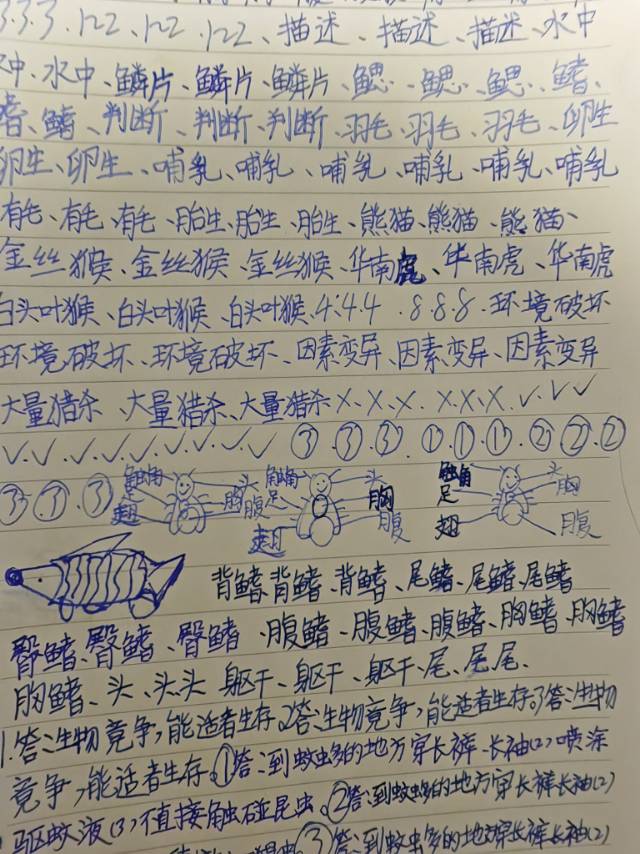 3.3.3、122、122、122、描述、描述、描述、水中
水中、水中、鳞片、鳞片、鳞片、鳃、鳃、鳃、鳍、
鳍、鳍、判断、判断、判断、羽毛、羽毛、羽毛、卵生
卵生、卵生、哺乳、哺乳、哺乳、哺乳、哺乳、哺乳
有毛、有毛、有毛、胎生、胎生、胎生、熊猫、熊猫、熊猫、
金丝猴、金丝猴、金丝猴、华南虎、华南虎、华南虎
白头叶猴、白头叶猴、白头叶猴、4.4.4、8.8.8、环境破坏
环境破坏、环境破坏、因素变异、因素变异、因素变异
大量猎杀、大量猎杀、大量猎杀 X、X、X、X、X、X、✓、✓、✓
✓、✓、✓、✓、✓、✓、✓、✓、✓ ③、③、③、①、①、①、②、②、②
③、③、③ 触角 足 翅 头 胸 腹 触角 足 翅 头 胸 腹 触角 足 翅 头 胸 腹
背鳍、背鳍、背鳍、尾鳍、尾鳍、尾鳍
臀鳍、臀鳍、臀鳍、腹鳍、腹鳍、腹鳍、胸鳍、胸鳍
胸鳍、头、头、头 躯干、躯干、躯干、尾、尾、尾、
1.答:生物竞争,能适者生存2答:生物竞争,能适者生存,3答:生物
竞争,能适者生存。①答:到蚊虫多的地方穿长裤、长袖(2)喷涂
驱蚊液(3)不直接触碰昆虫。②答:到蚊虫多的地方穿长裤长袖(2)
③答:到蚊虫多的地方穿长裤长袖(2)